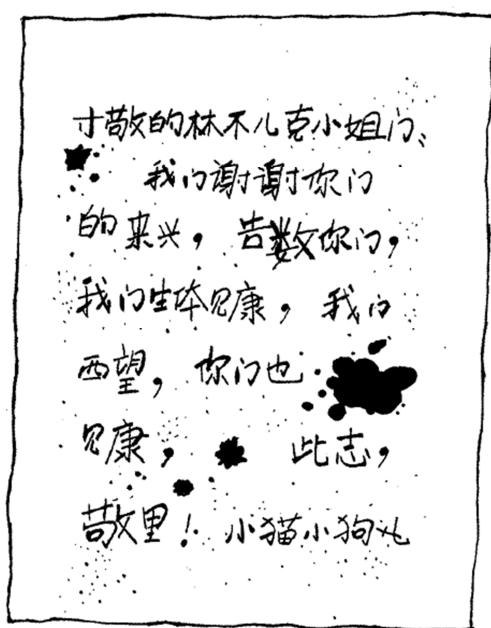 寸敬的林不儿克小姐门、
我门谢谢你门
的来兴，告数你门，
我门生体见康，我门
西望，你门也
见康，此志，
敬里！小猫小狗